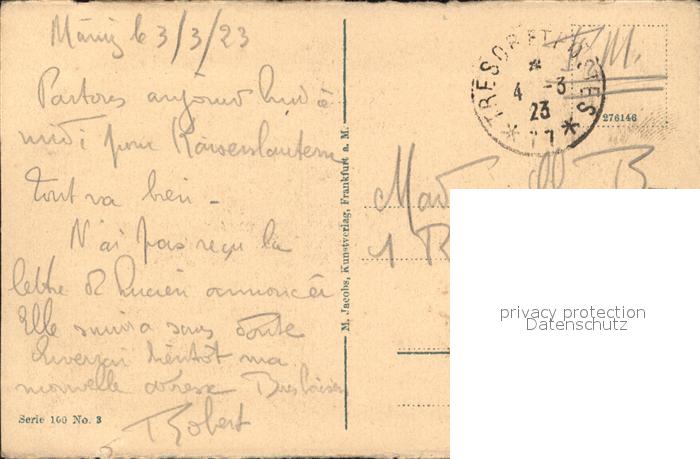 Mainz le 3/3/23
Partons aujourd'hui à
midi pour Kaiserslautern
Tout va bien -
N'ai pas reçu la
lettre de Lucien annoncée
Elle suivra sans doute
Enverrai bientôt ma
nouvelle adresse
Robert
Serie 100 No. 3
M. Jacobs, Kunstverlag, Frankfurt a. M.
TRESOR ET POSTES
4 -3
23
* 77 *
F.M.
276146
1 R
privacy protection
Datenschutz